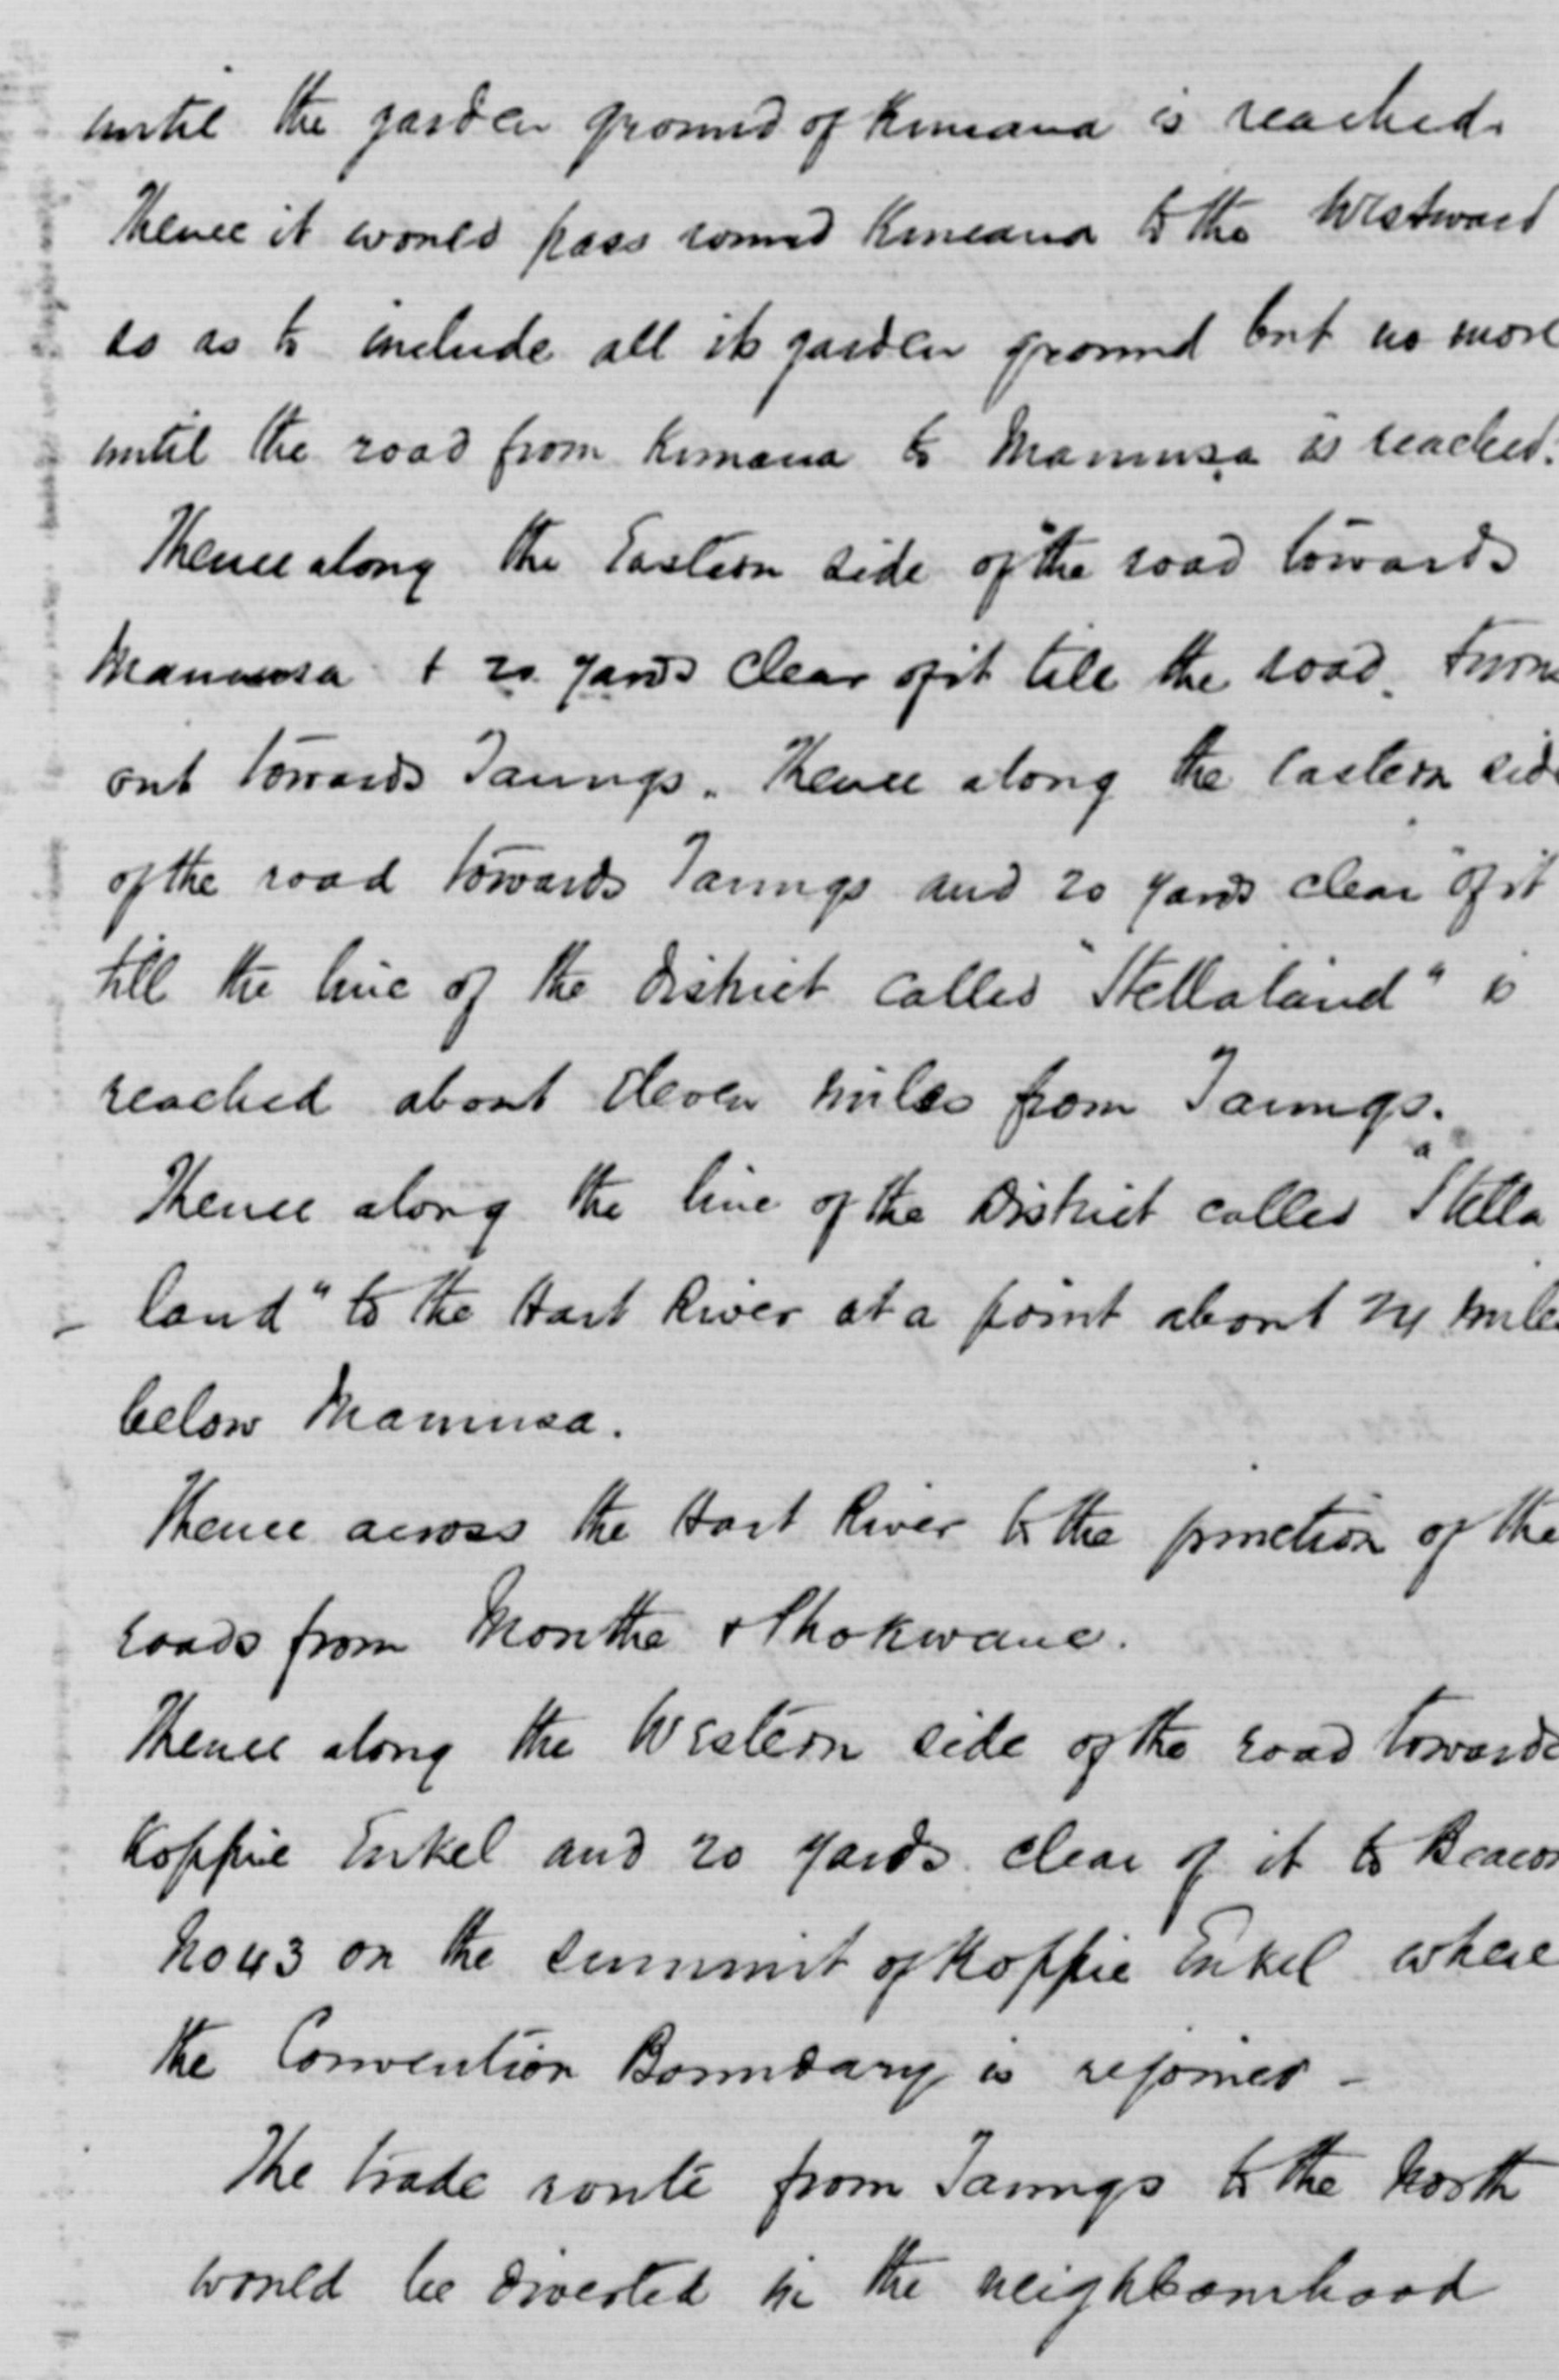 until the garden ground of Kunana is reached.
Thence it would pass round Kunana to the Westward
so as to include all its garden ground but no more
until the road from Kunana to Mamusa is reached.
Thence along the Eastern side of the road towards
Mamusa + 20 yards clear of it till the road turns
out towards Taungs. Thence along the Eastern side
of the road towards Taungs and 20 yards clear of it
till the line of the district called "Stellaland" is
reached about eleven miles from Taungs.
Thence along the line of the District called "Stella
- land" to the Hart River at a point about 24 miles
below Mamusa.
Thence across the Hart River to the junction of the
roads from Monthe & Phokwane.
Thence along the Western side of the road towards
Koppie Enkel and 20 yards clear of it to Beacon
No 43 on the summit of Koppie Enkel where
the Convention Boundary is rejoined -
The trade route from Taungs to the North
would be diverted in the neighbourhood